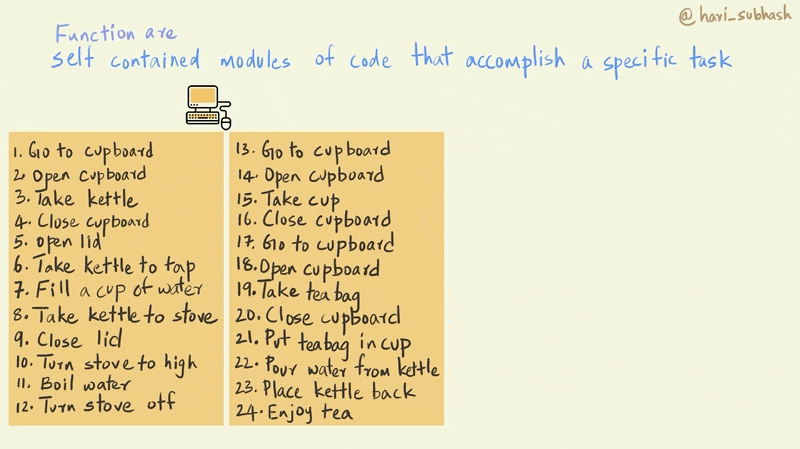 @hari_subhash
Function are
self contained modules of code that accomplish a specific task
1. Go to cupboard
2. Open cupboard
3. Take kettle
4. Close cupboard
5. open lid
6. Take kettle to tap
7. Fill a cup of water
8. Take kettle to stove
9. Close lid
10. Turn stove to high
11. Boil water
12. Turn stove off
13. Go to cupboard
14. Open cupboard
15. Take cup
16. Close cupboard
17. Go to cupboard
18. Open cupboard
19. Take tea bag
20. Close cupboard
21. Put teabag in cup
22. Pour water from kettle
23. Place kettle back
24. Enjoy tea